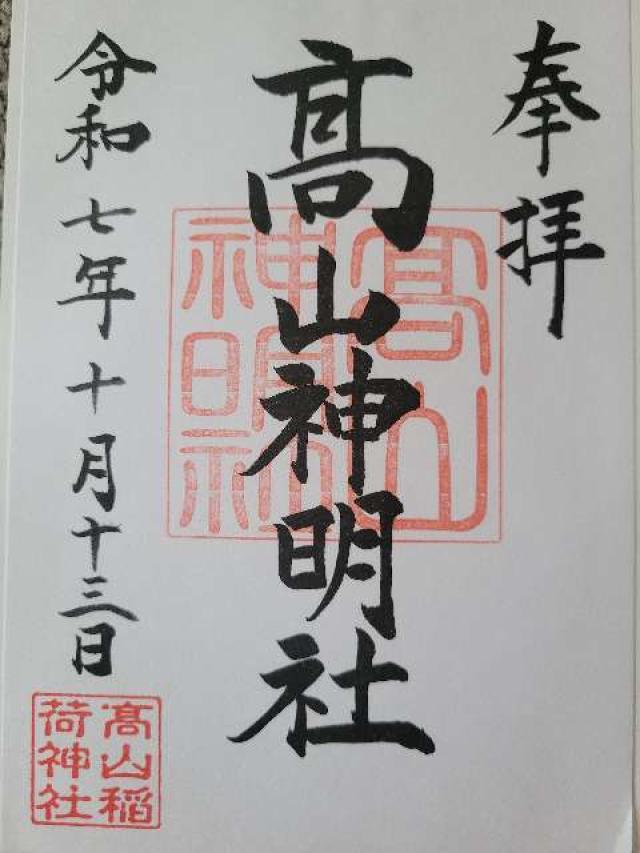 奉拝
髙山神明社
令和七年十月十三日
髙山
神明社
髙山稲
荷神社